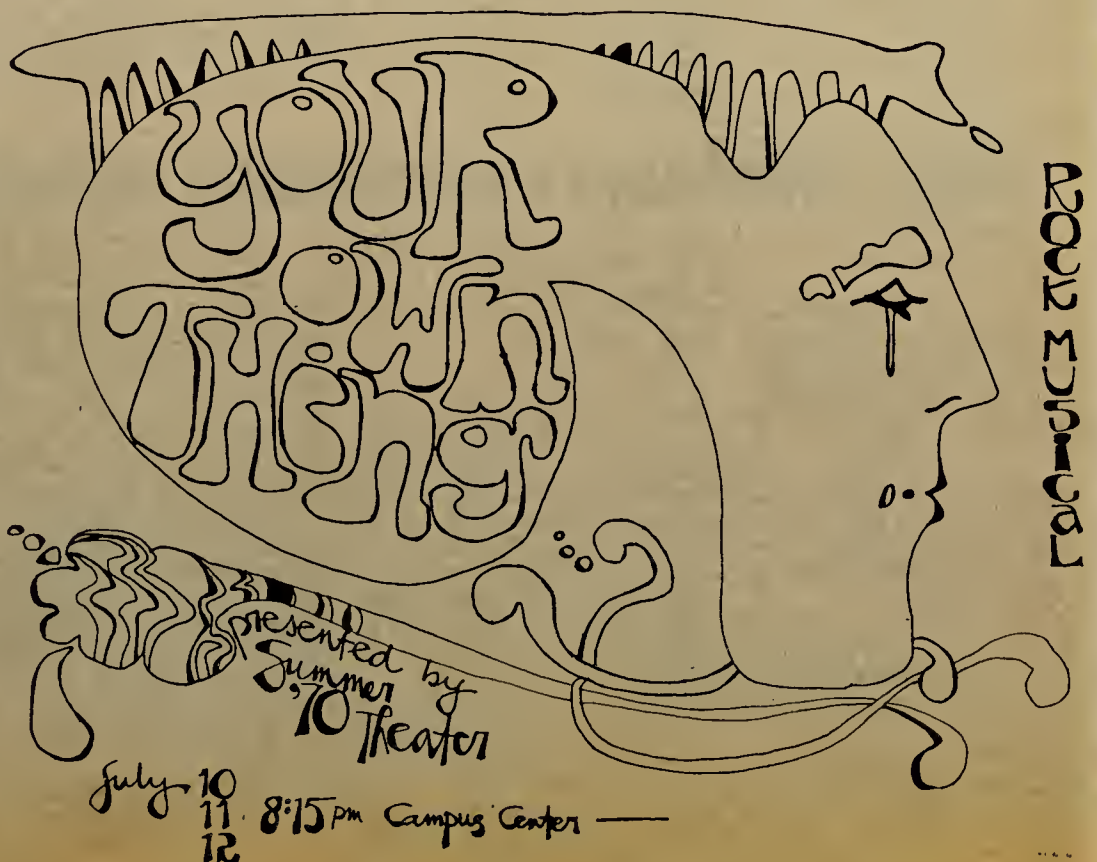 your
own
Thing
ROCK MUSICaL
presented by
Summer
'70
Theater
July 10
11 8:15 pm Campus Center —
12